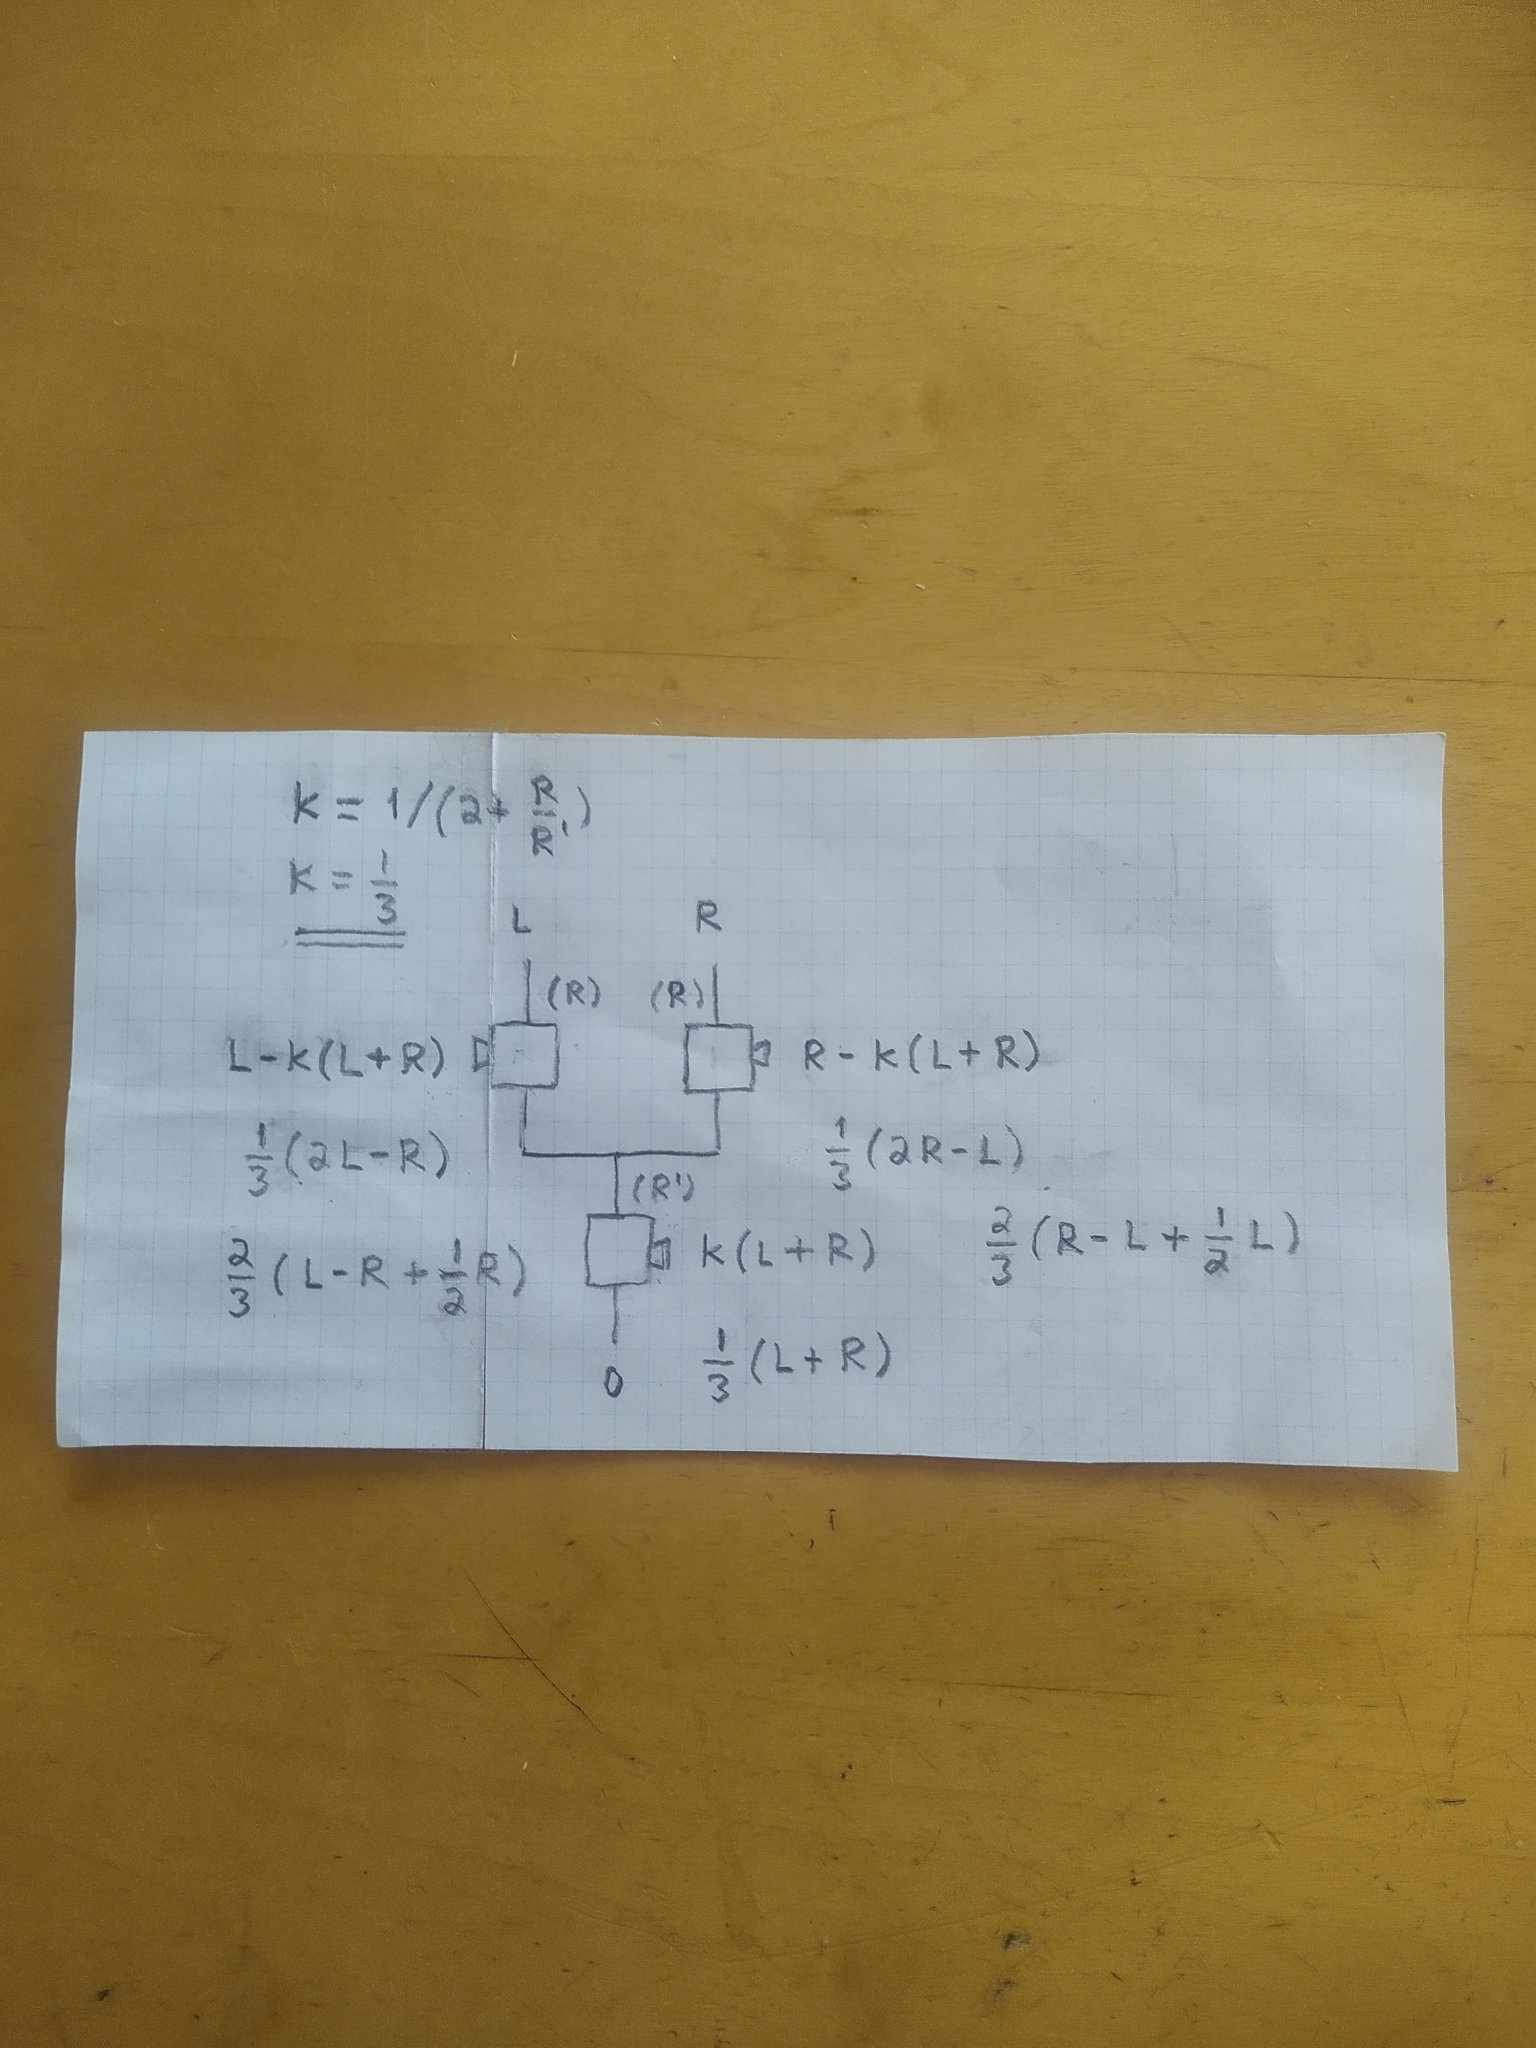 K = 1/(2+ R/R')
K = 1/3
L R
(R) (R)
L-K(L+R) R-K(L+R)
1/3 (2L-R) 1/3 (2R-L)
(R')
2/3 (L-R+1/2 R) K(L+R) 2/3 (R-L+1/2 L)
0 1/3 (L+R)